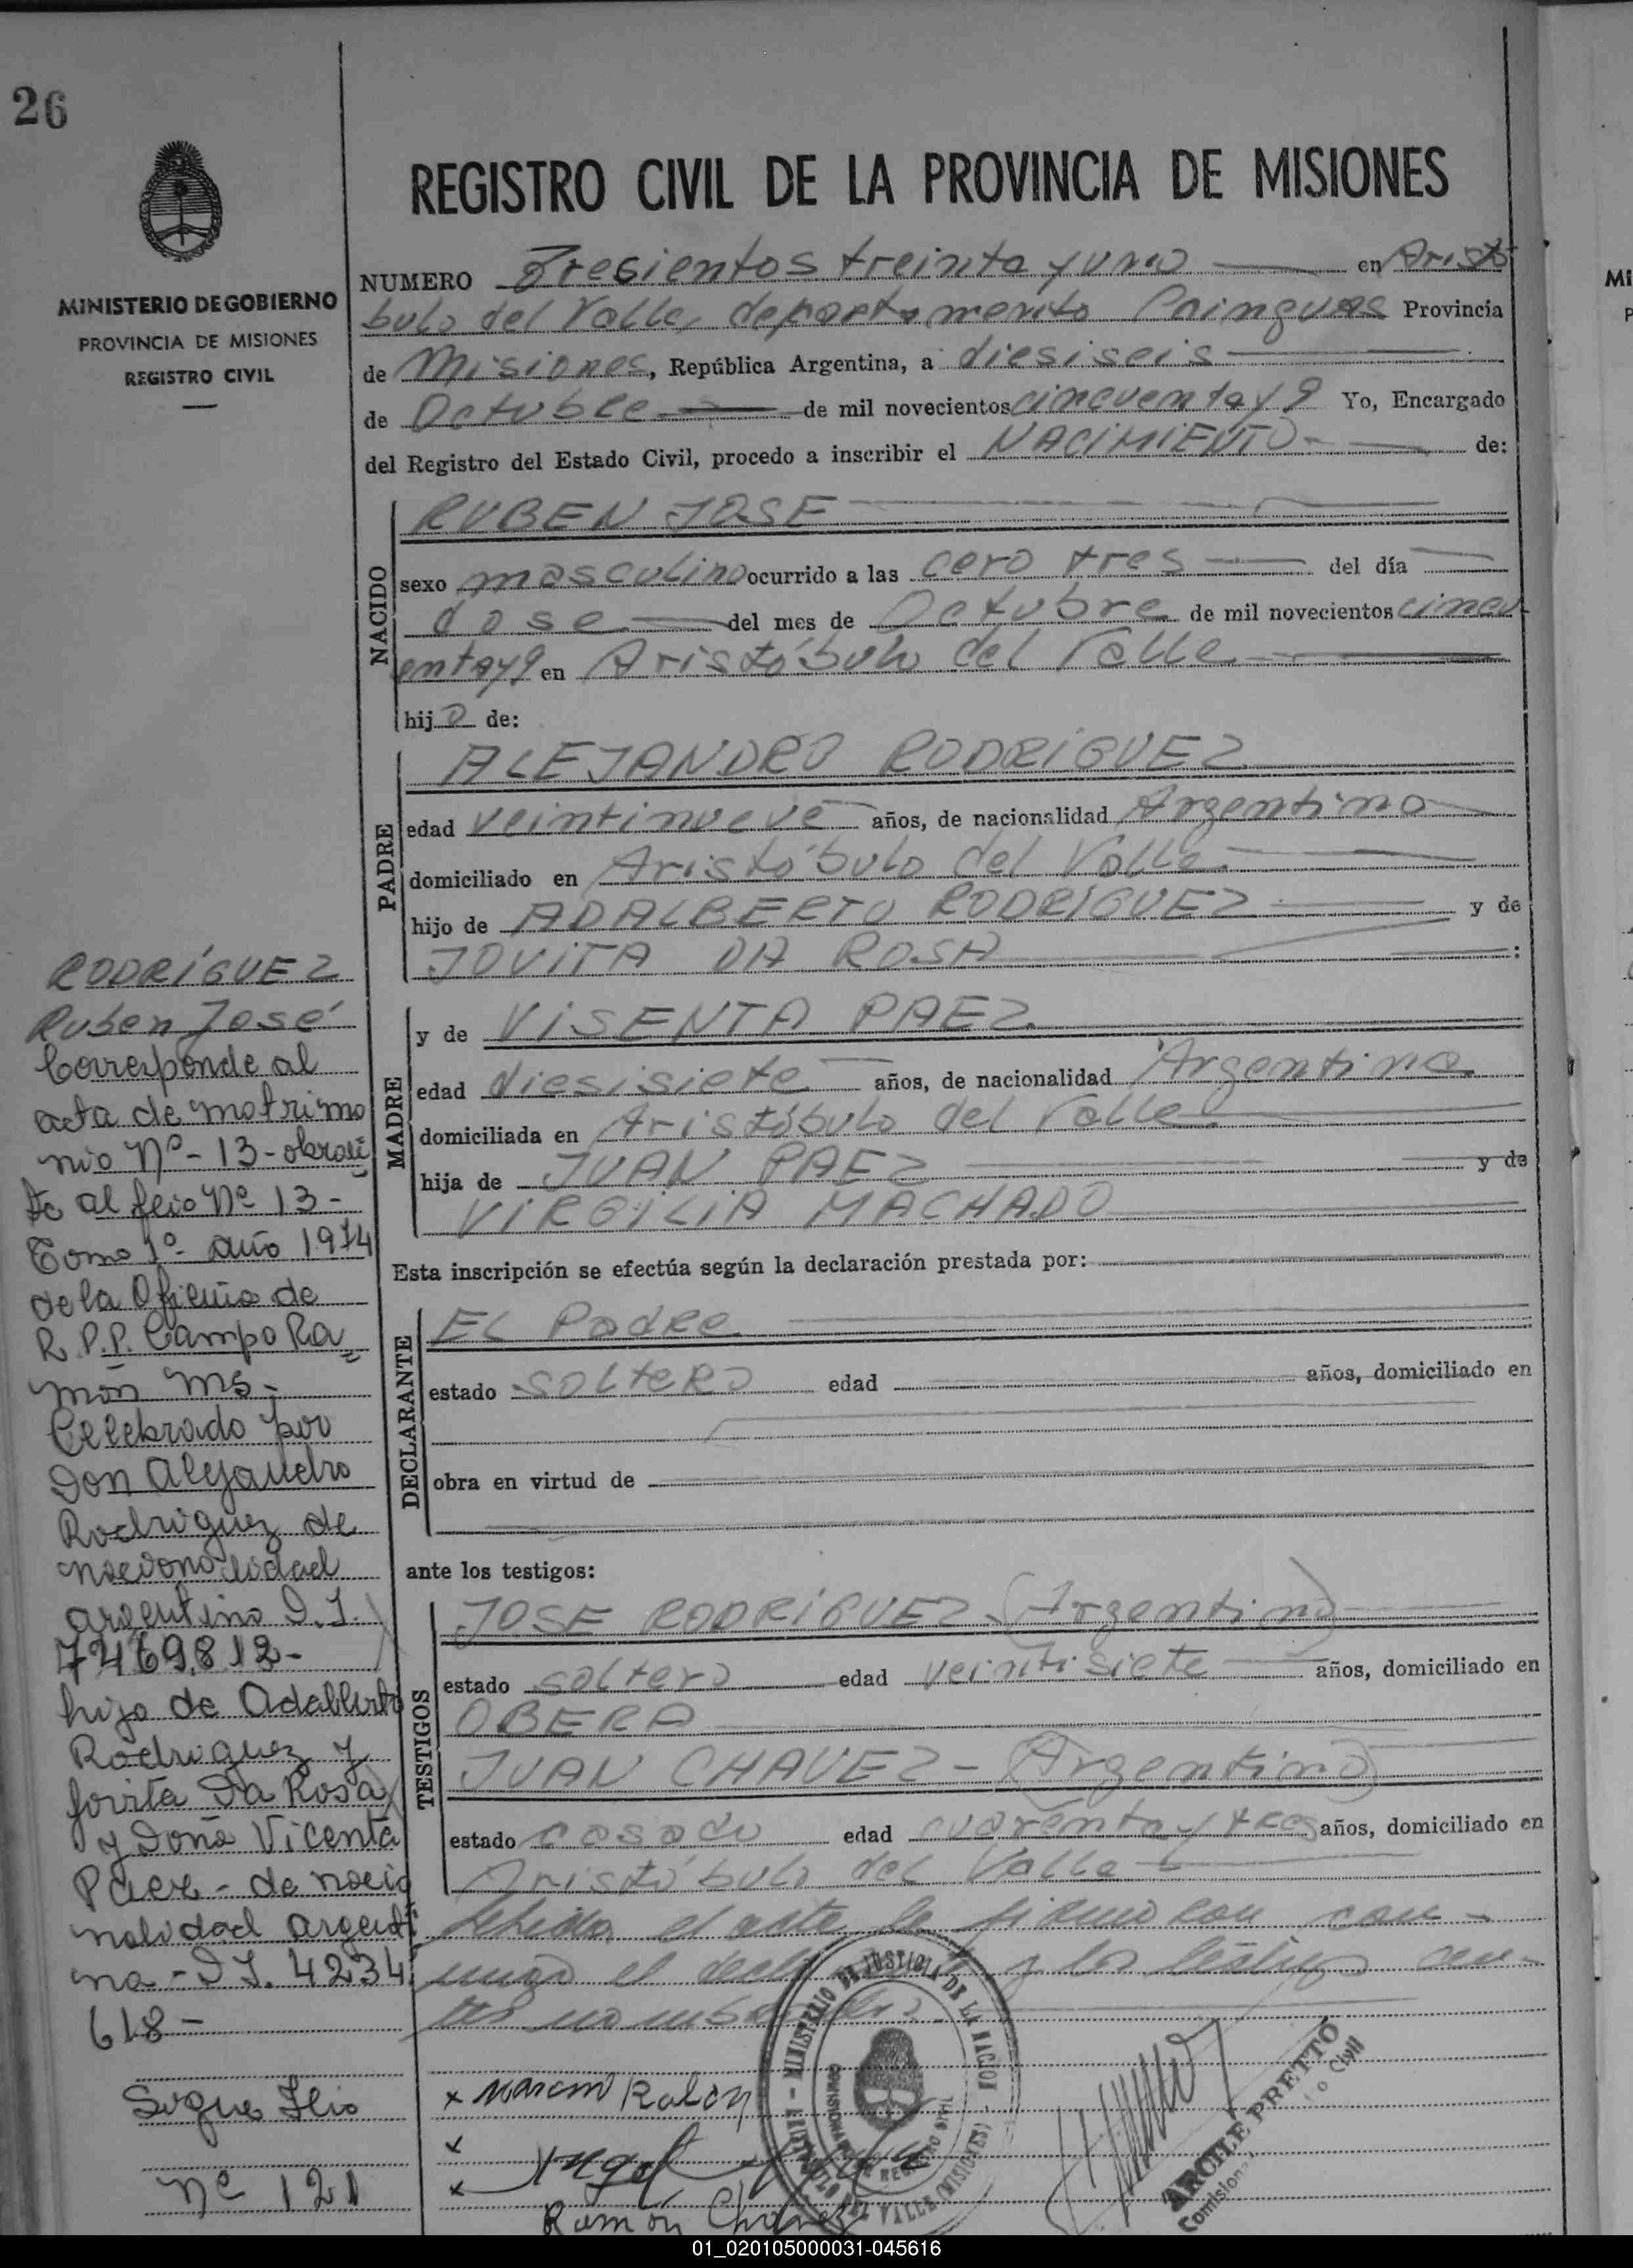 26
MINISTERIO DE GOBIERNO
PROVINCIA DE MISIONES
REGISTRO CIVIL
REGISTRO CIVIL DE LA PROVINCIA DE MISIONES
NUMERO Tresientos treinta y uno en Aristó
bulo del Valle, departamento Cainguas Provincia
de Misiones, República Argentina, a diesiseis
de Octubre de mil novecientos cincuenta y 9 Yo, Encargado
del Registro del Estado Civil, procedo a inscribir el NACIMIENTO de:
NACIDO
RUBEN JOSE
sexo masculino ocurrido a las cero tres del día
dose del mes de Octubre de mil novecientos cincu
enta y 9 en Aristóbulo del Valle
hijo de:
PADRE
ALEJANDRO RODRÍGUEZ
edad veintinueve años, de nacionalidad Argentino
domiciliado en Aristóbulo del Valle
hijo de ADALBERTO RODRÍGUEZ y de
JOVITA DA ROSA :
MADRE
y de VISENTA PAEZ
edad diesisiete años, de nacionalidad Argentina
domiciliada en Aristóbulo del Valle
hija de JUAN PAEZ y de
VIRGILIA MACHADO
Esta inscripción se efectúa según la declaración prestada por:
DECLARANTE
EL Padre
estado soltero edad años, domiciliado en
obra en virtud de
ante los testigos:
TESTIGOS
JOSE RODRÍGUEZ - (Argentino)
estado soltero edad veintisiete años, domiciliado en
OBERA
JUAN CHAVEZ - (Argentino)
estado casado edad cuarenta y tres años, domiciliado en
Aristóbulo del Valle
el acto la firmó con con-
migo el y los testigos
RODRÍGUEZ
Ruben José
Corresponde al
acta de matrimo
nio Nº - 13 - obran
te al folio Nº 13 -
Tomo 1º - año 1974
de la Oficina de
R. P.P. Campo Ra
món Ms -
Celebrado por
Don Alejandro
Rodriguez de
nacionalidad
argentino D.I.
7469.812 -
hijo de Adalberto
Rodriguez y
Jovita Da Rosa
y Doña Vicenta
Paez - de nacio
nalidad argenti
na - D.I. 4234
618 -
Sigue Flio
Nº 121
x
x
x
Ramón Chavez
MINISTERIO DE JUSTICIA DE LA NACION
REGISTRO CIVIL
DEL VALLE (MISIONES)
ARCILE PRETTO
01_020105000031-045616